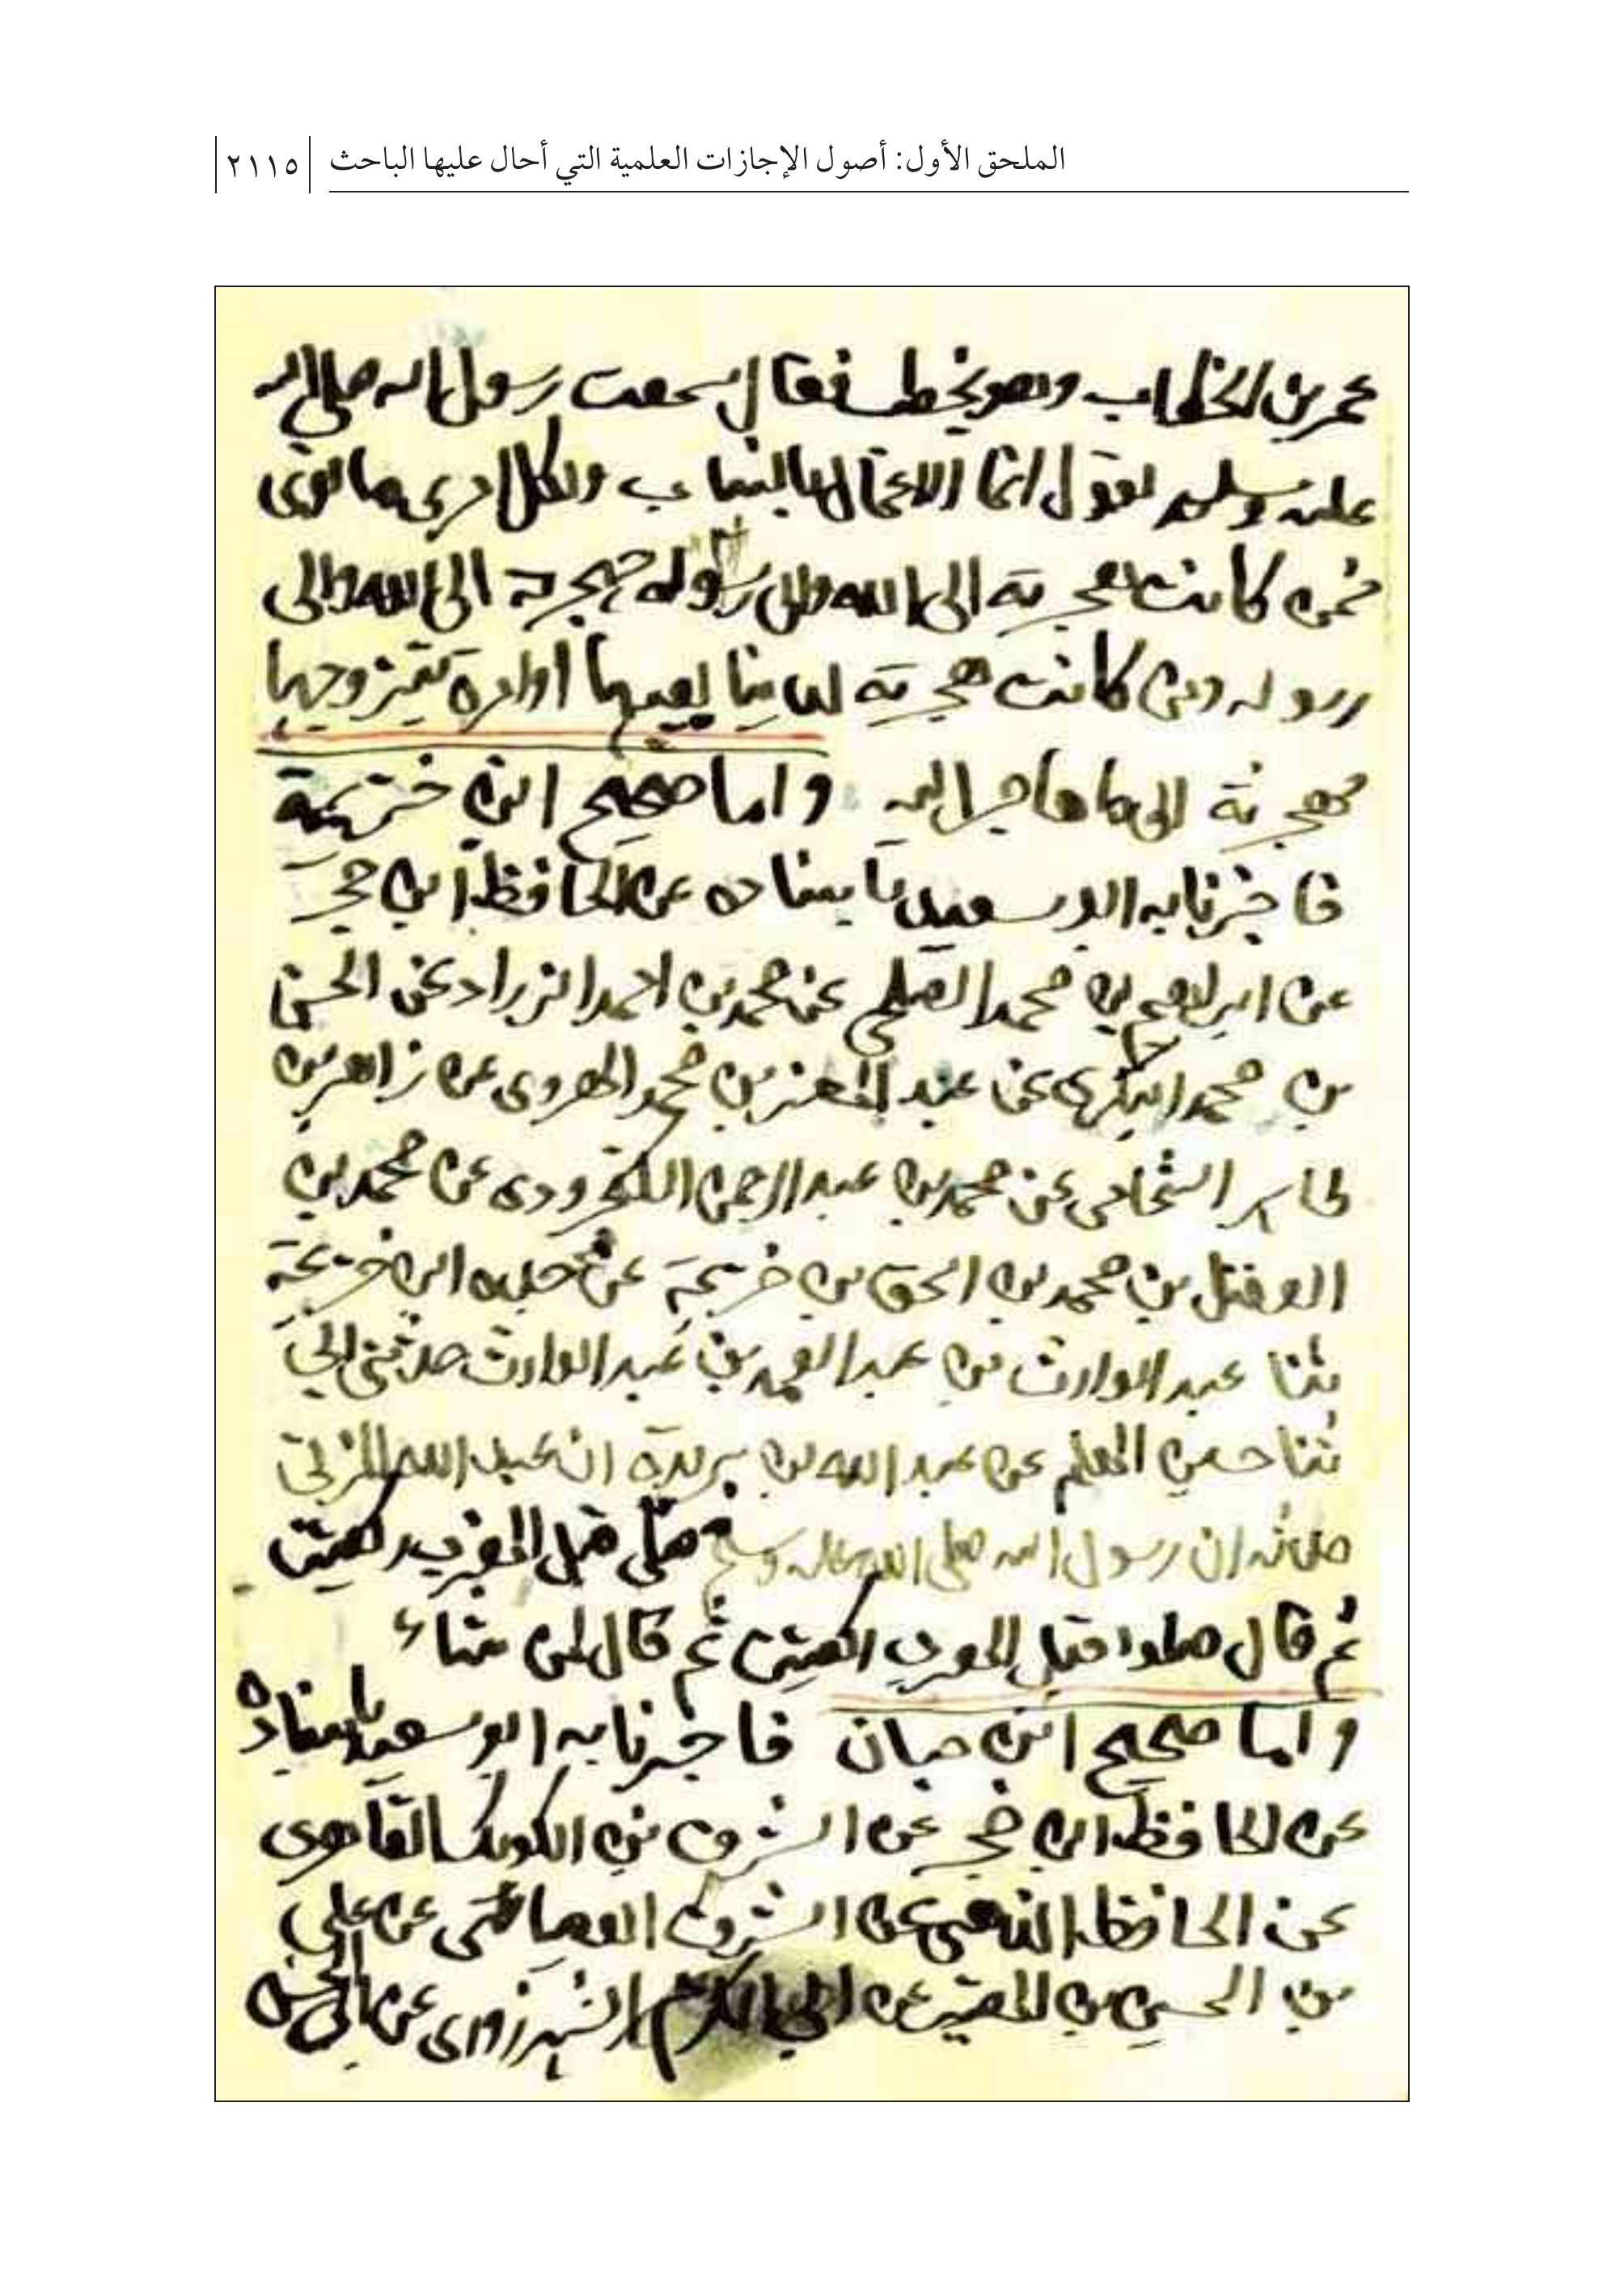 الملحق الأول: أصول الإجازات العلمية التي أحال عليها الباحث ٢١١٥
عمر بن الخطاب وهو يخطب فقال سمعت رسول الله صلى الله
عليه وسلم يقول انما الاعمال بالنيات ولكل امرئ ما نوى
فمن كانت هجرته الى الله والى رسوله فهجرته الى الله والى
رسوله ومن كانت هجرته لدنيا يصيبها او امراة يتزوجها
فهجرته الى ما هاجر اليه واما صحيح ابن خزيمة
فاخبرنا به ابو سعيد باسناده عن الحافظ ابن حجر
عن ابراهيم بن محمد عن محمد بن احمد الزراد عن الحسن
بن محمد البكري عن عبد المعز بن محمد الهروي عن زاهر بن
طاهر الشحامي عن محمد بن عبد الرحمن عن محمد بن
الفضل بن محمد بن اسحق بن خزيمة عن جده ابن خزيمة
ثنا عبد الوارث بن عبد الصمد بن عبد الوارث حدثني ابي
ثنا حسين المعلم عن عبد الله بن بريدة ان عبد الله المزني
حدثه ان رسول الله صلى الله عليه وسلم صلى قبل المغرب ركعتين
ثم قال صلوا قبل المغرب ركعتين ثم قال لمن شاء
واما صحيح ابن حبان فاخبرنا به ابو سعيد باسناده
عن الحافظ ابن حجر عن الشرف بن الكويك القاهري
عن الحافظ الذهبي عن الشرف عن علي
بن الحسين بن المقير عن ابي الكرم الشهرزوري عن ابي الحسن